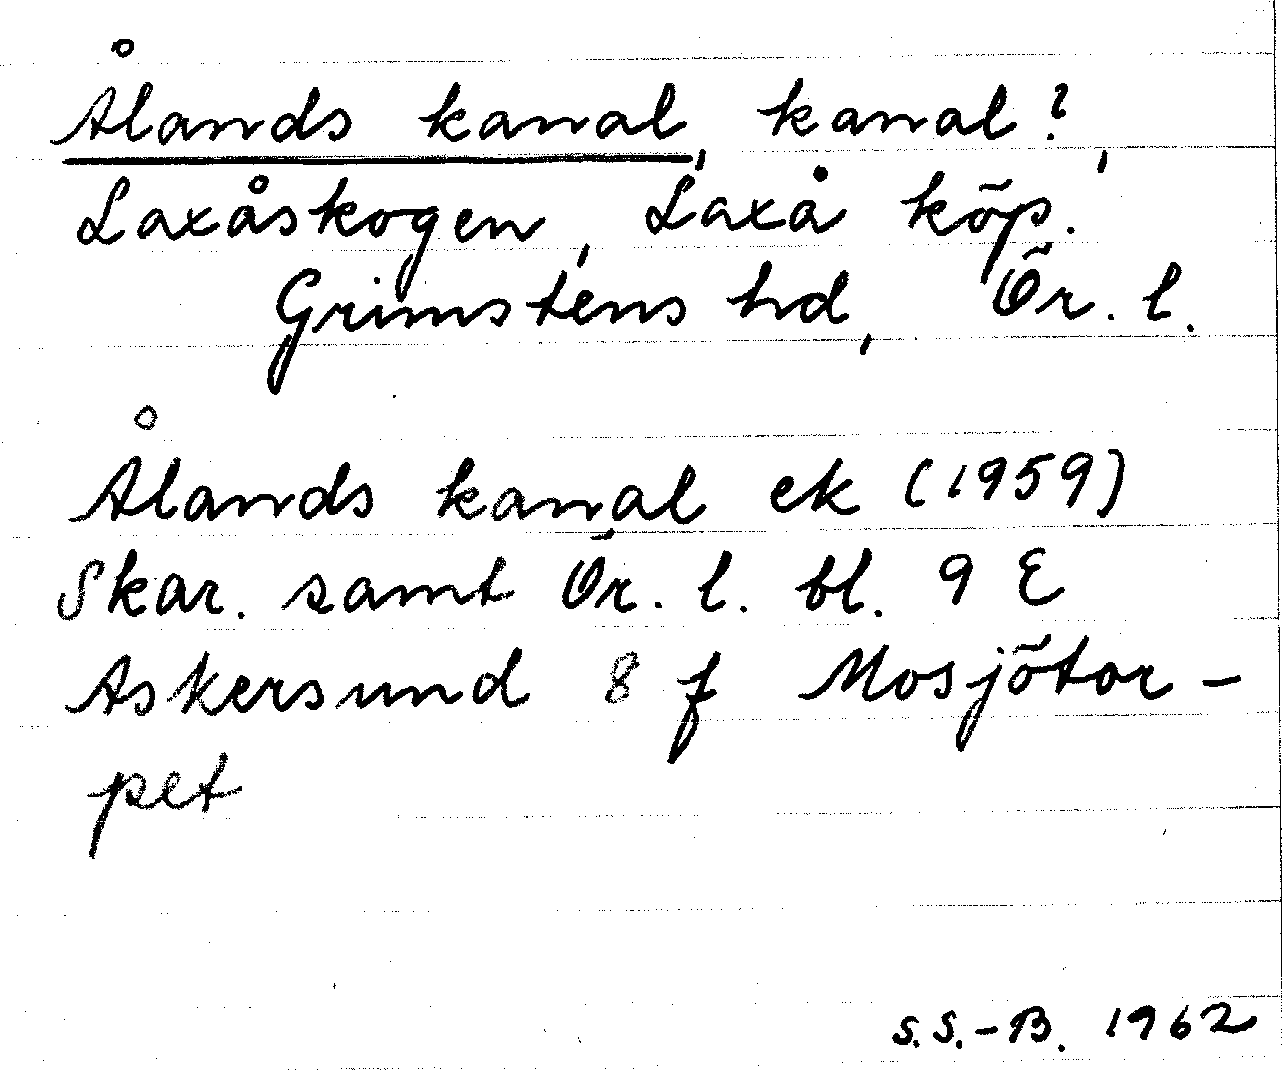 Ålands kanal, kanal?,
Laxåskogen, Laxå köp.
Grimstens hd, Ör. l.
Ålands kanal ek (1959)
Skar. samt Ör. l. bl. 9 E
Askersund 8 f Mosjötor-
pet
S.S.-B. 1962